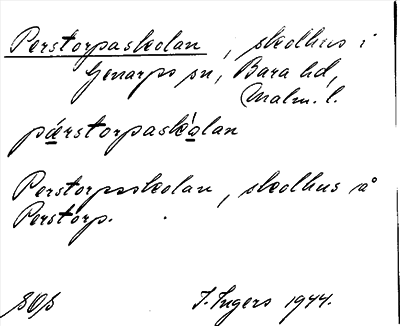 Perstorpaskolan, skolhus i
Genarps sn, Bara hd,
Malm. l.
pärstorpaskolan
Perstorpaskolan, skolhus å
Perstorp.
I. Ingers 1944.